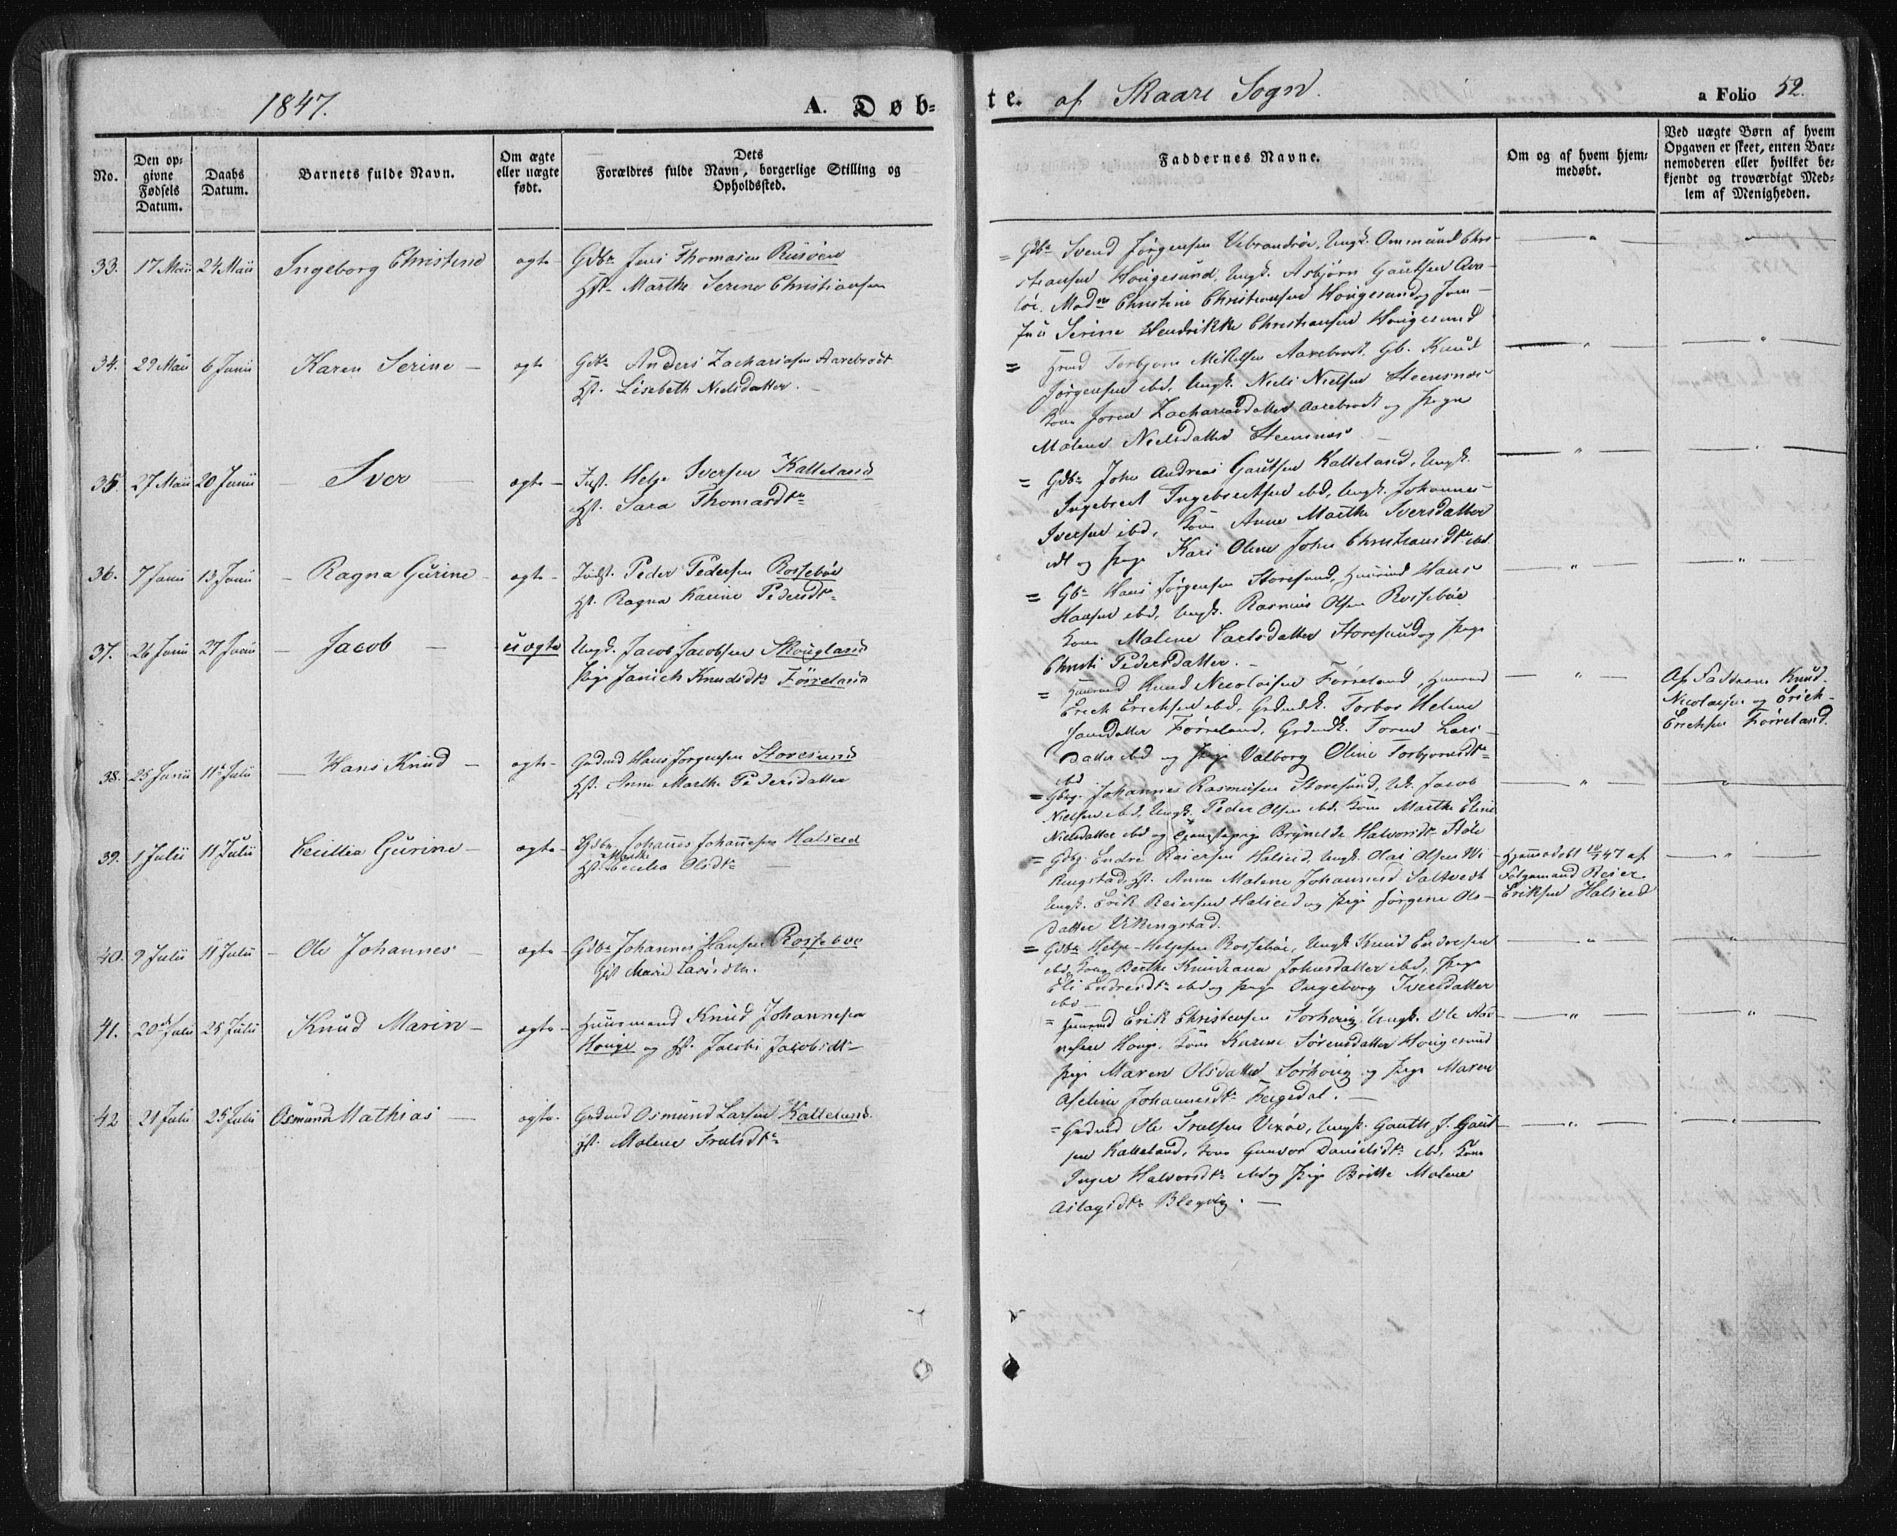 1847.
A. Døb-
te. af Skaare Sogn.
a Folio 52.
No.
Den op-
givne
Fødsels
Datum.
Daabs
Datum.
Barnets fulde Navn.
Om ægte
eller uægte
født.
Dets
Forældres fulde Navn, borgerlige Stilling og
Opholdssted.
Faddernes Navne.
Om og af hvem hjem-
medøbt.
Ved uægte Børn af hvem
Opgaven er skeet, enten Bar-
nemoderen eller hvilket be-
kjendt og troværdigt Med-
lem af Menigheden.
33. 17 Maii 24 Maii Ingeborg Christine ægte Gdbr Jens Thomasen Risøen
Hst. Marthe Serine Christiansen
= Gdbr Svend Jørgensen Vibrandsøe, Ungk. Ommund Chri-
stiansen Hougesund, Ungk. Asbjørn Gautsen Ava-
løe. Mdme Christine Christiansen Hougesund og Jom-
fru Serine Hendrikke Christiansen Hougesund
34. 29 Maii 6 Junii Karen Serine ægte Gdbr Anders Zachariasen Aarebrodt
Hst. Lisebeth Nielsdatter.
= Hmd Torbjørn Mikelsen Aarebrodt. Gb. Knud
Jørgensen ibd, Ungk. Niels Nielsen Steensnes
Kone Joren Zachariasdatter Aarebrodt og Pige
Malene Nielsdatter Steensnes
35 27 Maii 20 Junii Iver ægte Inst. Helje Iversen Kalleland
Hst. Sara Thomasdtr
= Gdbr John Andreas Gautsen Kalleland, Ungk.
Ingebreet Ingebreetsen ibd, Ungk. Johannes
Iversen ibd, Kone Anne Marthe Iversdatter
ibd og Pige Kari Oline John Christiansdtr ibd
36. 7 Junii 13 Junii Ragna Gurine ægte Indst. Peder Pedersen Rossebøe
Hst. Ragna Karine Pedersdtr
= Gbr Hans Jørgensen Storesund, Huusmd Hans
Hansen ibd, Ungk. Rasmus Olsen Rossebøe
Kone Malene Carlsdatter Storesund og Pige
Christi Pedersdatter.
37. 26 Junii 27 Junii Jacob uægte Ungk. Jacob Jacobsen Skougland
Pige Janich Knudsdtr Førreland
= Huusmd Knud Nicolaisen Førreland, Huusmd
Erich Erichsen ibd, Grdmdk. Torbor Helene
Jansdatter Førreland, Grdmdk. Toren Lars-
datter ibd og Pige Valborg Oline Torbjørnsdtr
ibd
Af Fadderne Knud
Nicolaisen og Erich
Erichsen Førreland.
38. 25 Junii 11te Julii Hans Knud ægte Grdmd Hans Jørgensen Storesund
Hst. Anne Marthe Pedersdatter
= Gbrg. Johannes Rasmusen Storesund, Uk. Jacob
Nielsen ibd, Ungk. Peder Olsen ibd, Kone Marthe Eline
Nielsdatter ibd og Tjenstepige Brynelde Halvorsdtr Støle
39. 1 Julii 11 Julii Cecillia Gurine ægte Gdbr Johanes Johannesen Halseid
Hst. Marthe Cecilia Olsdtr
= Gdbg. Endre Reiersen Halseid, Ungk. Olai Olsen Vi-
kingstad, Hst. Anne Malene Johannesd. Saltvedt
Ungk. Erik Reiersen Halseid og Pige Jørgine Ols-
datter Vikingstad.
Hjemmedøbt 10/7 47 af
Følgemand Reier
Eriksen Halseid
40. 9 Julii 11 Julii Ole Johannes ægte Gdbr Johannes Hansen Rossebøe
Hst Mari Larsdtr.
= Gdbr Helje Heljesen Rossebøe, Ungk Knud Endresen
ibd, Kone Berthe Knudeana Johnsdatter ibd, Pige
Eli Endresdtr ibd og Pige Ingeborg Iversdatter
ibd
41. 20de Julii 25 Julii Knud Marin ægte Huusmand Knud Johannesen
Houge og Hst. Jacobi Jacobsdtr
= Huusmd Erik Christensen Sørhoug, Ungk. Ole Han-
nesen Houge. Kone Karine Sørensdatter Hougesund
Pige Maren Olsdatter Sørhoug og Pige Maren
Aseline Johannesdtr Bergedal.
42 21 Julii 25 Julii Osmund Mathias ægte Grdmd Osmund Larsen Kalleland.
Hst. Malene Trulsdtr
= Grdmd Ole Trulsen Vixøe, Ungk. Gauth J. Gaut-
sen Kalleland, Kone Gunvor Danielsdtr ibd. Kone
Inger Halvorsdtr ibd og Pige Britte Malene
Aslagsdtr Blegvig.